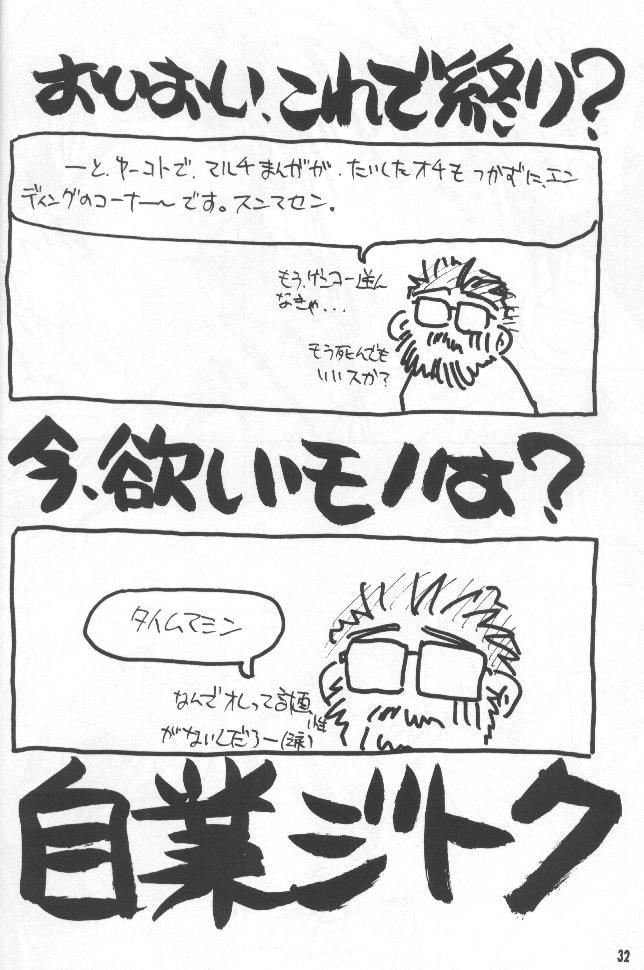 おいおい、これで終り?
ーと、ゆーコトで、マルチまんがが、たいしたオチもつかずに、エン
ディングのコーナー〜です。スンマセン。
もう、げんコー送ん
なきゃ...
もう死んでも
いいスか?
今、欲しいモノは?
タイムマシン
なんでオレって計画性
がないんだろー(涙)
自業ジトク
32